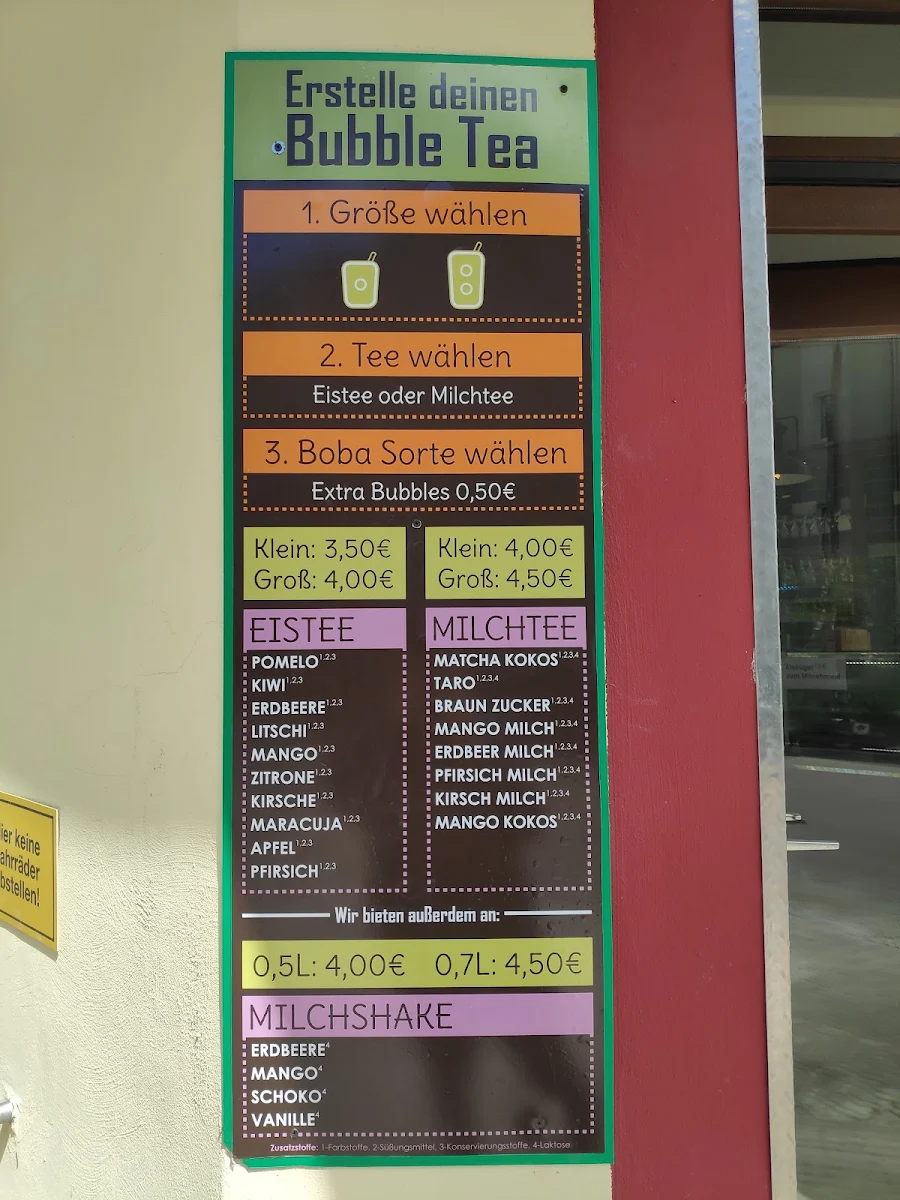 Erstelle deinen
Bubble Tea
1. Größe wählen
2. Tee wählen
Eistee oder Milchtee
3. Boba Sorte wählen
Extra Bubbles 0,50€
Klein: 3,50€
Groß: 4,00€
EISTEE
POMELO1,2,3
KIWI1,2,3
ERDBEERE1,2,3
LITSCHI1,2,3
MANGO1,2,3
ZITRONE1,2,3
KIRSCHE1,2,3
MARACUJA1,2,3
APFEL1,2,3
PFIRSICH1,2,3
Klein: 4,00€
Groß: 4,50€
MILCHTEE
MATCHA KOKOS1,2,3,4
TARO1,2,3,4
BRAUN ZUCKER1,2,3,4
MANGO MILCH1,2,3,4
ERDBEER MILCH1,2,3,4
PFIRSICH MILCH1,2,3,4
KIRSCH MILCH1,2,3,4
MANGO KOKOS1,2,3,4
Wir bieten außerdem an:
0,5L: 4,00€ 0,7L: 4,50€
MILCHSHAKE
ERDBEERE4
MANGO4
SCHOKO4
VANILLE4
Zusatzstoffe: 1-Farbstoffe, 2-Süßungsmittel, 3-Konservierungsstoffe, 4-Laktose
ier keine
ahrräder
bstellen!